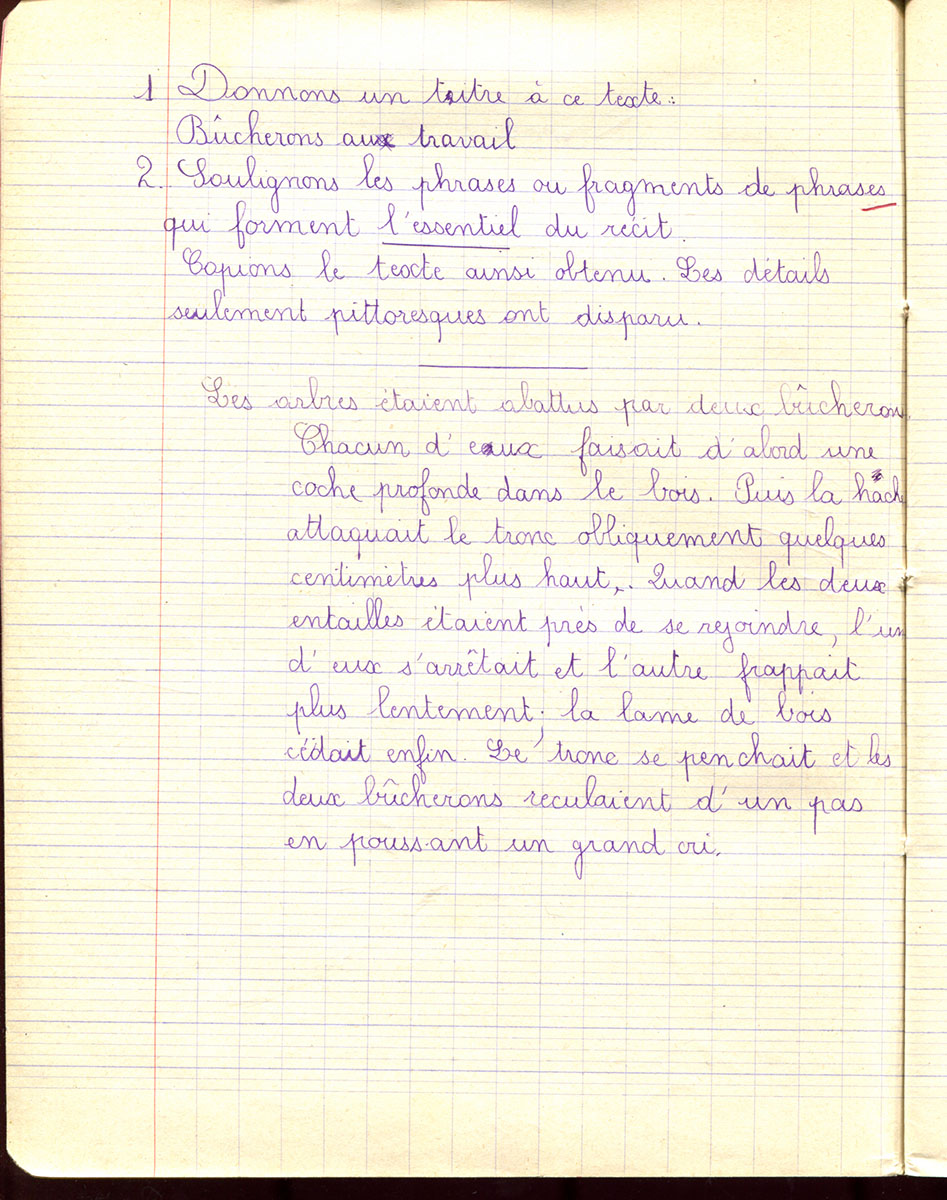 1 Donnons un titre à ce texte :
Bûcherons au travail
2. Soulignons les phrases ou fragments de phrases
qui forment l'essentiel du récit.
Copions le texte ainsi obtenu. Les détails
seulement pittoresques ont disparu.
Les arbres étaient abattus par deux bûcheron
Chacun d'eux faisait d'abord une
coche profonde dans le bois. Puis la hach
attaquait le tronc obliquement quelques
centimètres plus haut,. Quand les deux
entailles étaient près de se rejoindre, l'un
d'eux s'arrêtait et l'autre frappait
plus lentement ; la lame de bois
cédait enfin. Le tronc se penchait et les
deux bûcherons reculaient d'un pas
en poussant un grand cri.